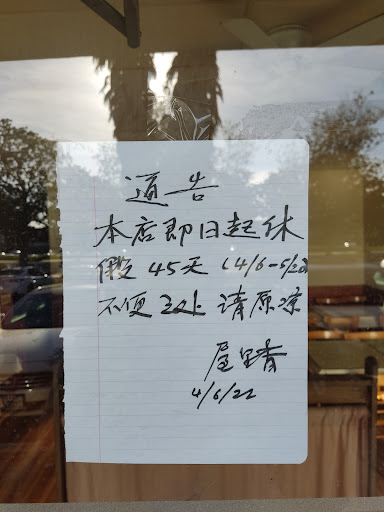 通告
本店即日起休
假 45天 (4/6-5/20)
不便之处 请原凉
屋里香
4/6/22